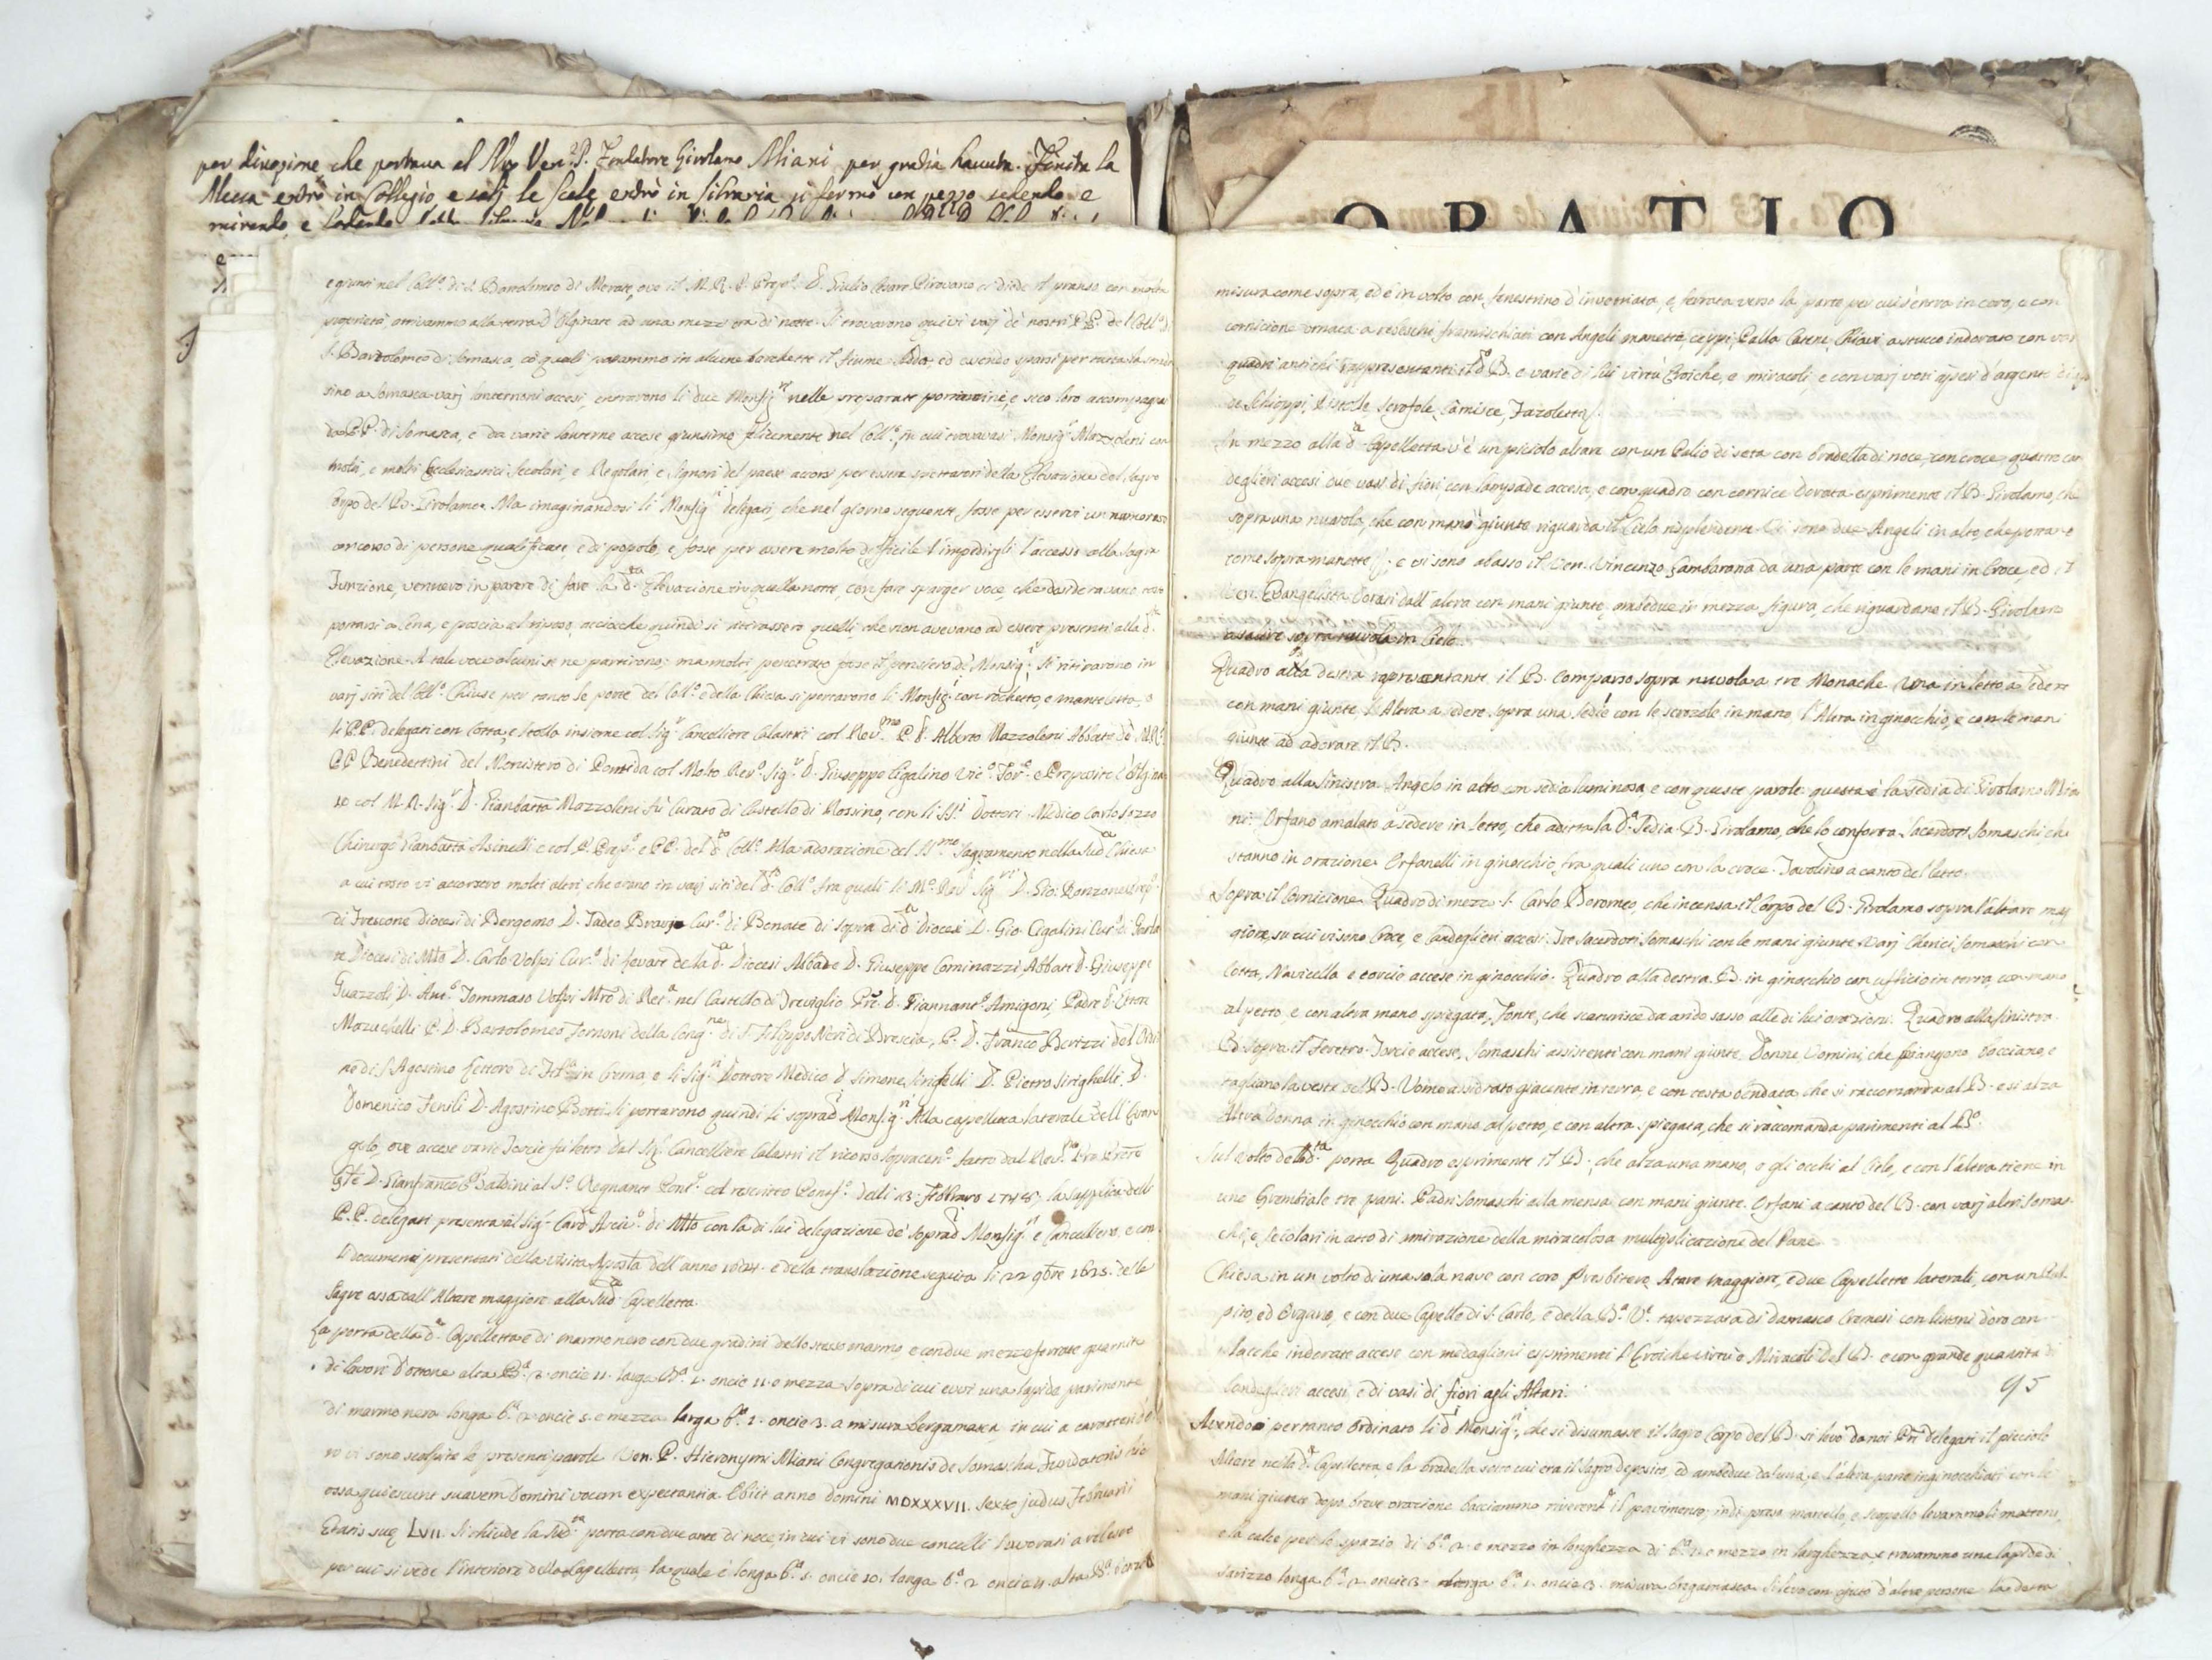 per divozione che portava al Nro Ven. P. Fondatore Girolamo Miani, per gratia havuta. Finita la
Messa entrò in Collegio, e salj le scale entrò in libraria si fermò un pezzo sedendo e
mirando, e lodando
ORATIO
e giunti nel Coll.º di S. Bartolomeo di Merate, ove il M. R. P. Prep.º D. Giulio Cesare Pirovano ci diede il pranso con molta
proprietà, arrivammo alla terra d'Olginate ad una mezz'ora di notte. Si trovarono quivi varj de' nostri PP. del Coll.º di
S. Bartolomeo di Somasca, co' quali passammo in alcune barchette il fiume Adda, ed essendo sparsi per tutta la strada
sino a Somasca varj lanternoni accesi, entrarono li due Monsig.ri nelle preparate portantine, e seco loro accompagnati
da PP. di Somasca, e da varie lanterne accese giunsimo felicemente nel Coll.º, in cui trovavasi Monsig.r Mazzoleni con
molti, e molti Ecclesiastici Secolari, e Regolari e Signori del paese accorsi per essere spettatori della Elevazione del Sagro
Corpo del B. Girolamo. Ma imaginandosi li Monsig.ri delegati, che nel giorno seguente, fosse per esservi un numeroso
concorso di persone qualificate e di popolo, e fosse per essere molto difficile l'impedirgli l'accesso alla sagra
Funzione, vennero in parere di fare la d.ta Elevazione in quella notte, con fare sparger voce, che desideravano tosto
portarsi a Cena, e poscia al riposo, acciocche quindi si ritirassero quelli che non avevano ad essere presenti alla d.ta
Elevazione. A tale voce alcuni se ne partirono; ma molti, penetrato forse il pensiero de' Monsig.ri Si ritirarono in
varj siti del Coll.º Chiuse per tanto le porte del Coll.º e della Chiesa si portarono li Monsig.ri con rochetto, e mantelletta, e
li PP. delegati con Cotta, e Stolla insieme col Sig.r Cancelliere Calastri col Rev.mo P. D. Alberto Mazzoleni Abbate de' M.RR.
PP Benedettini del Monistero di Pontida col Molto Rev.º Sig.r D. Giuseppe Cigalino Vic.º For.º e Preposito d'Olgina
te col M. R. Sig.r D. Gianbatta Mazzoleni fù Curato di Castello di Rossino, con li SS.i Dottori Medico Carlo Pozzo
Chirurgo Gianbatta Asinelli e col P. Prep.º e PP. del d.to Coll.º Alla adorazione del SS.mo Sagramento nella Sud.ta Chiesa
a cui tosto vi accorsero molti altri che erano in varj siti del d.to Coll.º fra quali li M.º Rev.di Sig.ri D. Gio: Ronzone
di Frescone Diocesi di Bergomo D. Tadeo Bravi Cur.º di Bonate di sopra di d.a Diocesi D. Gio. Cigalini Cur.º di Garla
te Diocesi di Mlo D. Carlo Volpi Cur.º di Levate della d.a Diocesi Abbate D. Giuseppe Cominazzi, Abbate D. Giuseppe
Guazzoli, D. Ant.º Tommaso Volpi Mro di Ret.a nel Castello di Treviglio Pre. D. Giannant.º Amigoni Padre D. Ettore
Mazuchelli P. D. Bartolomeo Fornoni della Cong.ne di S. Filippo Neri di Brescia, P. D. Franco Bertzzi del Ordi
ne di S. Agostino Lettore di in Crema, e li Sig.ri Dottore Medico D. Simone Sirighelli D. Pietro Sirighelli D.
Domenico Fenili D. Agostino Botti. Si portarono quindi li soprad.i Monsig.ri Alla capelletta laterale dell'Evan
gelo, ove accese varie Torcie fu letto dal Sig.r Cancelliere Calastri il ricorso fatto dal Rev.
D. Gianfrancesco Baldini al S.º Regnante Pont.º col rescritto Pontif.º delli 13. Febbraro 1748, la supplica delli
P. P. delegati presentata al Sig.r Card. Arciv.º di Mlo con la di lui delegazione de' soprad.i Monsig.ri e Cancelliero, e con
li documenti presentati della Visita Aposta. dell'anno 1624. e della translazione seguita li 22 9bre 1625. delle
Sagre ossa dall'Altare maggiore alla Sud.a Capelletta.
La porta della d.a Capelletta è di marmo nero con due gradini dello stesso marmo e con due mezze ferrate guarnite
di lavori d'ottone alta B.a 2. oncie 11. larga B.a 1. oncie 11. e mezza. Sopra di cui evvi una lapide parimente
di marmo nero longa b.a 2 oncie 5. e mezza larga b.a 1. oncie 3. a misura bergamasca, in cui a caratteri d'o
ro vi sono scolpite le presenti parole Ven. P. Hieronymi Miani Congregationis de Somascha Fundatoris hic
ossa quiescunt suavem Domini vocem expectantia. Obiit anno Domini MDXXXVII. sexto jdus Februarii
Etatis suę LVII. Si chiude la Sud.ta porta con due ante di noce, in cui vi sono due cancelli lavorati a rilievo
per cui si vede l'interiore della Capelletta, la quale è longa b.a 5. oncie 10. larga b.a 2 oncie 11. alta B.a
misura come sopra, ed è in volto con fenestrino d'invetriata, e ferrata verso la parte per cui s'entra in coro, e con
cornicione ornata a rabeschi framischiati con Angeli manette, ceppi, Palla Catene, Chiavi a stucco indorato con varj
quadri antichi rappresentanti il d.to B. e varie di lui virtù Eroiche, e miracoli, e con varj voti appesi d'argento
de Schioppi, Pistolle, Scrofole, Camisce, Fazoletti.
In mezzo alla d.a Capelletta v'è un picciolo altare con un Palio di seta con bradella di noce, con croce, quattro can
deglieri accesi due vasi di fiori, con lampade accesa, e con quadro con cornice dorata esprimente il B. Girolamo, che
sopra una nuvola, che con mano giunte riguarda il Cielo risplendente. Vi sono due Angeli in alto, che porta-o
come sopra manette; e vi sono a basso il Ven. Vincenzo Gambarana da una parte con le mani in Croce, ed il
Ven. Evangelista Dorati dall'altra con mani giunte, ambedue in mezza figura, che riguardano il B. Girolamo
a salire sopra nuvola in Cielo.
Quadro alla destra rapresentante il B. Comparso sopra nuvola a tre Monache Una in letto a sedere
con mani giunte, l'Altra a sedere sopra una sedie con le scorzole in mano, l'Altra in ginocchio, e con le mani
giunte ad adorare il B.
Quadro alla Sinistra. Angelo in alto con sedia luminosa, e con queste parole: questa è la Sedia di Girolamo Mia
ni: Orfano amalato a sedere in letto, che adita la d.a Sedia. B. Girolamo, che lo conforta. Sacerdoti Somaschi, che
stanno in orazione. Orfanelli in ginocchio, fra quali uno con la croce. Tavolino a canto del letto.
Sopra il Cornicione. Quadro di mezzo S. Carlo Boromeo, che incensa il Corpo del B. Girolamo sopra l'altare mag
giore, su cui vi sono Croce, e Candeglieri accesi. Tre Sacerdoti Somaschi con le mani giunte. Varj Chierici Somaschi con
Cotta, Navicella e torcie accese in ginocchio. Quadro alla destra. B. in ginocchio con ufficio in terra, con mano
al petto, e con altra mano spiegata, Fonte, che scaturisce da arido sasso alle di lui orazioni. Quadro alla Sinistra.
B. sopra il Feretro. Torcie accese, Somaschi assistenti con mani giunte. Donne Uomini, che piangono, bacciano, e
tagliano la veste del B. Uomo assiderato giacente in terra, e con testa bendata, che si raccomanda al B. e si alza
Altra Donna in ginocchio con mano al petto, e con altra spiegata, che si raccomanda parimenti al B.o
Sul Volto della d.ta porta Quadro esprimente il B., che alza una mano, e gli occhi al Cielo, e con l'altra tiene in
uno Grembiale tre pani. Padri Somaschi alla mensa con mani giunte. Orfani a canto del B. con varj altri Somas-
chi, e Secolari in atto di amirazione della miracolosa multiplicazione del Pane.
Chiesa in un volto di una sola nave con coro Presbiterio, Altare maggiore, e due Capellette laterali, con un Pul-
pito, ed Organo, e con due Capelle di S. Carlo, e della B.a V.e tapezzata di damasco Cremesi con listoni d'oro con
placche indorate accese con medaglioni esprimenti l'Eroiche virtù e Miracoli del B. e con grande quantità di
Candeglieri accesi e di vasi di fiori agli Altari.
95
Avendo pertanto ordinato li d.i Monsig.ri, che si disumasse il Sagro Corpo del B. si levò da noi Pri delegati il picciolo
Altare nella d.a Capelletta, e la bradella sotto cui era il Sagro deposito, ed ambedue da l'una, e l'altra parte inginocchiati con le
mani giunte dopo breve orazione bacciammo riverent.e il pavimento; indi preso martello, e scopello levammo li mattoni,
e la calce per lo spazio di b.a 2. e mezzo in longhezza di b.a 1. e mezzo in larghezza, e trovammo una lapide di
sarizzo longa b.a 2. oncie 3. e larga b.a 1. oncie 3. misura bergamasca. Si levò con ajuto d'altre persone la detta